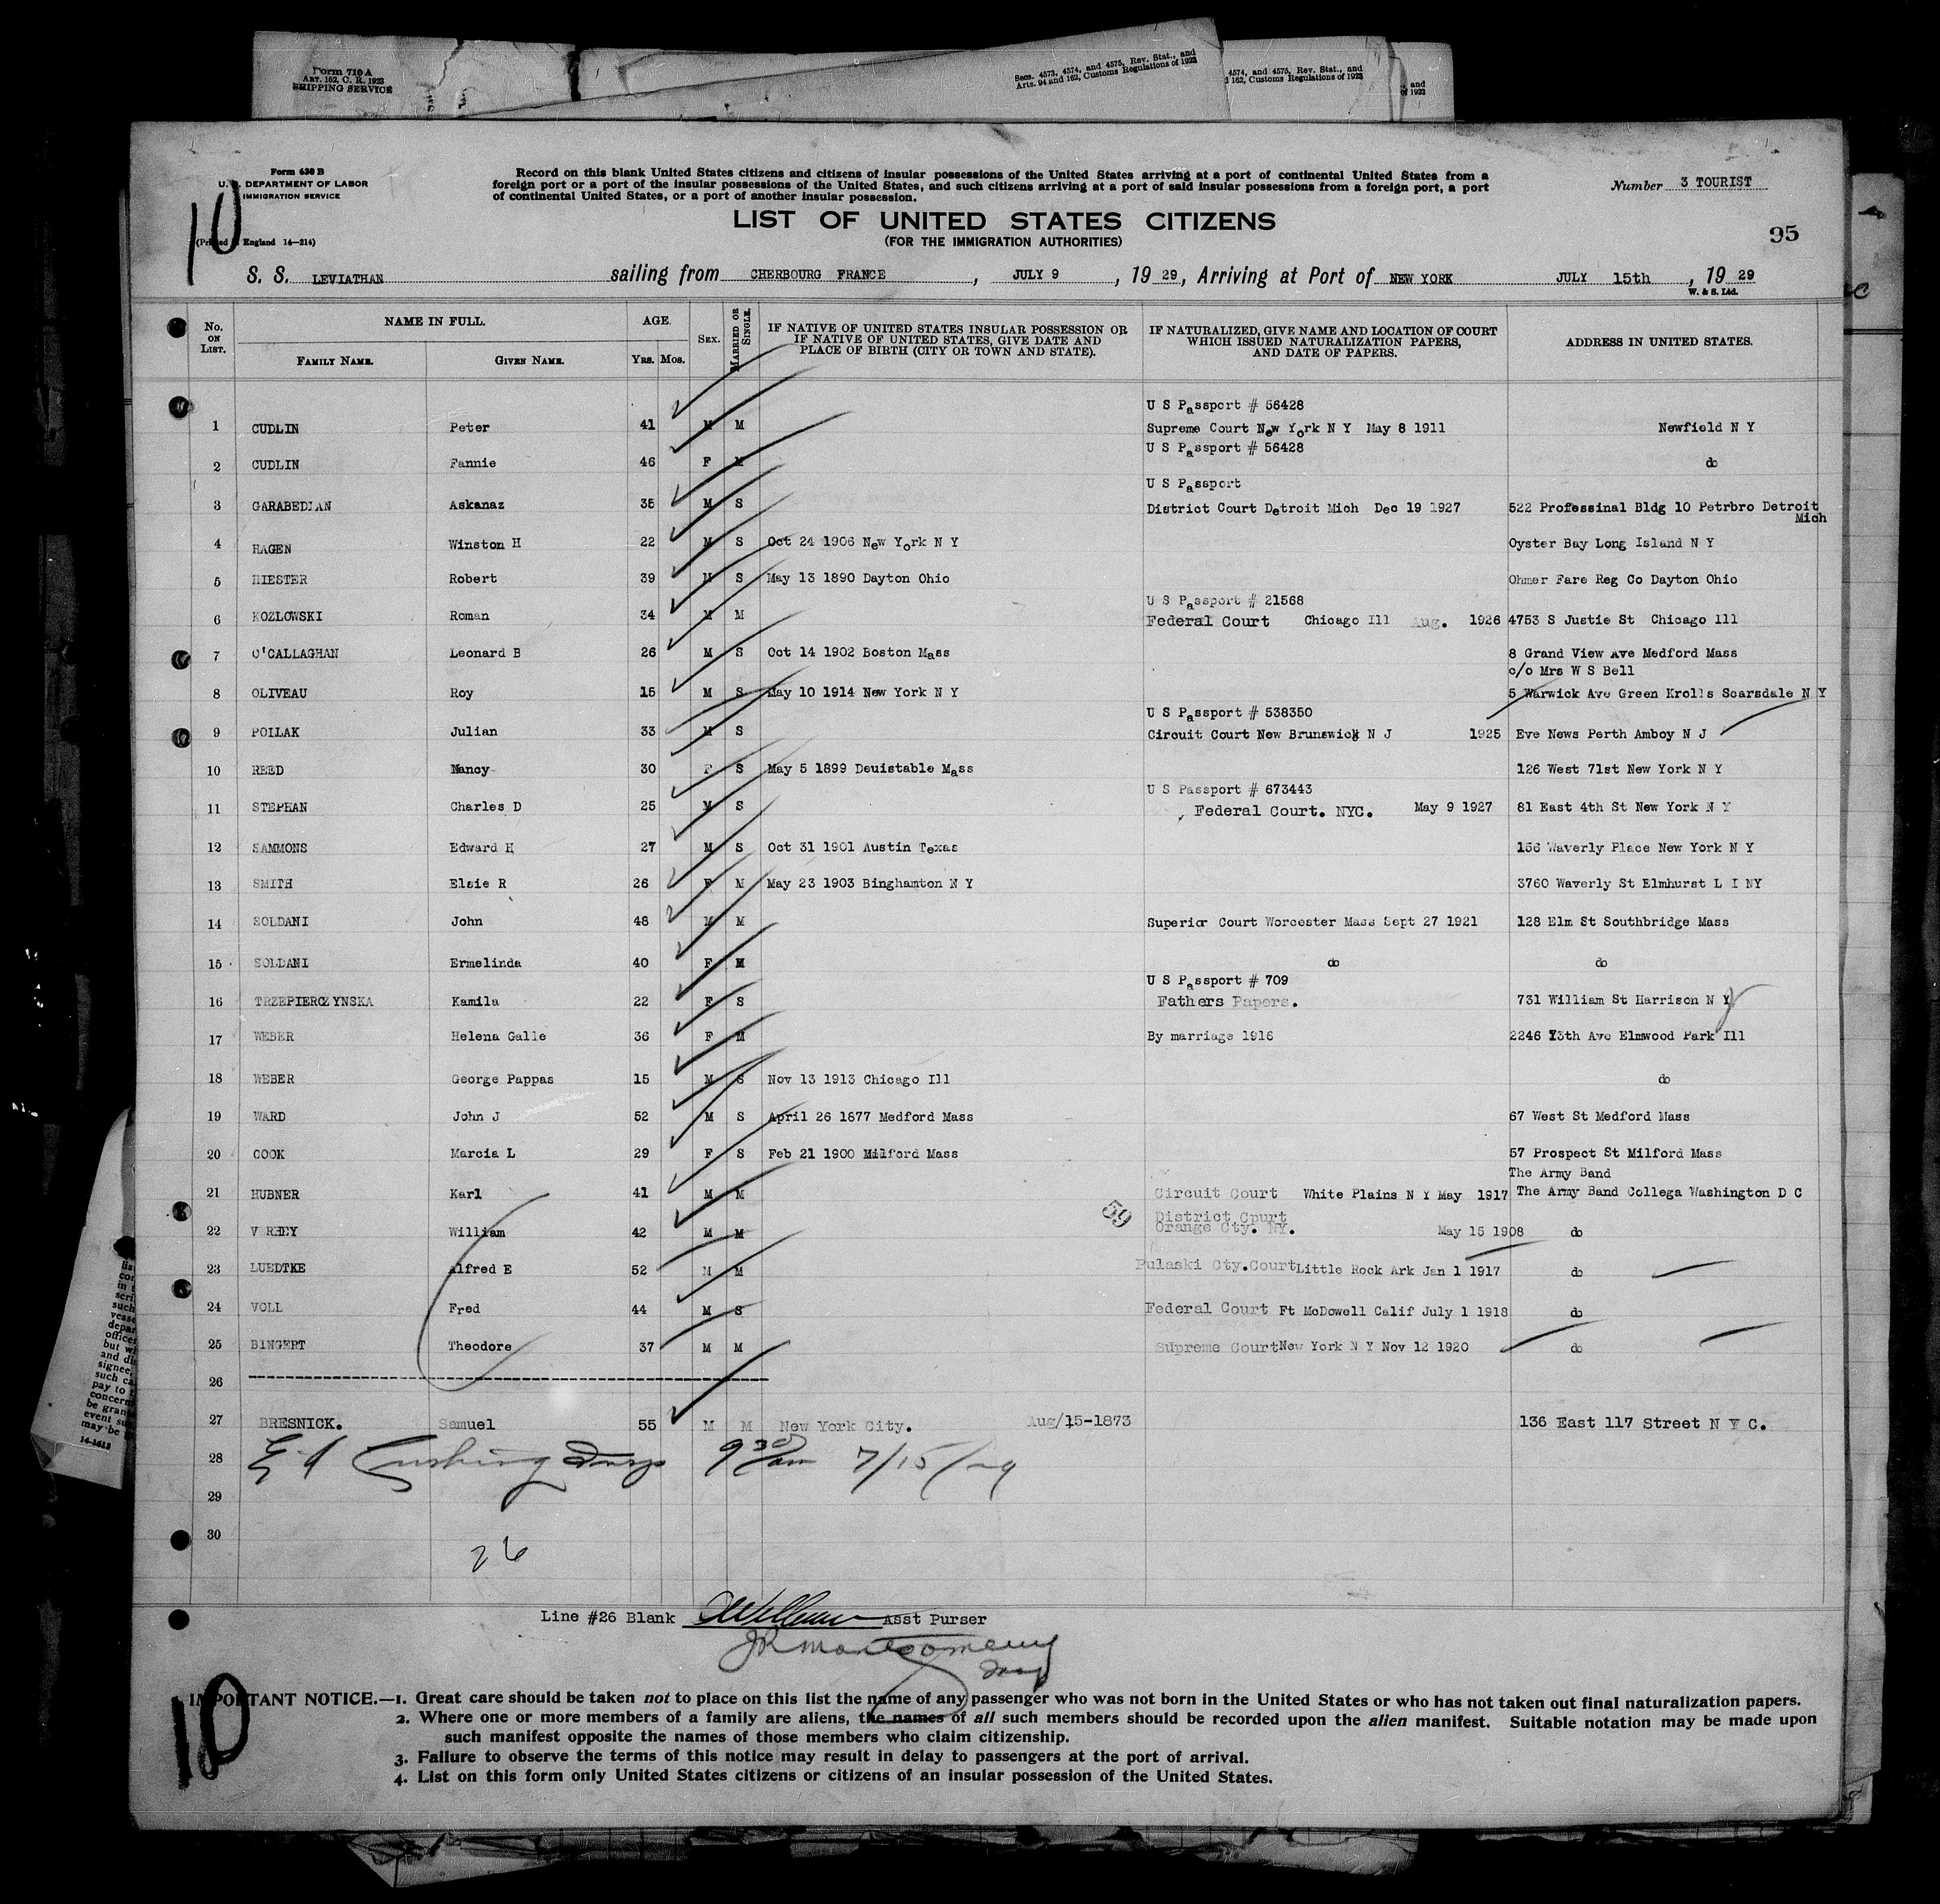 Form 710 A
ART. 162, C. R. 1923
SHIPPING SERVICE
Secs. 4573, 4574, and 4575, Rev. Stat., and
Arts. 94 and 162, Customs Regulations of 1923
4574, and 4575, Rev. Stat., and
162, Customs Regulations of 1923
and
of 1923
Form 630 B
U. S. DEPARTMENT OF LABOR
IMMIGRATION SERVICE
(Printed England 14—214)
10
Record on this blank United States citizens and citizens of insular possessions of the United States arriving at a port of continental United States from a
foreign port or a port of the insular possessions of the United States, and such citizens arriving at a port of said insular possessions from a foreign port, a port
of continental United States, or a port of another insular possession.
Number 3 TOURIST
LIST OF UNITED STATES CITIZENS
(FOR THE IMMIGRATION AUTHORITIES)
95
S. S. LEVIATHAN sailing from CHERBOURG FRANCE, JULY 9, 19 29, Arriving at Port of NEW YORK JULY 15th, 19 29
W. & S. Ltd.
No. ON LIST. NAME IN FULL. FAMILY NAME. GIVEN NAME. AGE. YRS. MOS. SEX. MARRIED OR SINGLE. IF NATIVE OF UNITED STATES INSULAR POSSESSION OR IF NATIVE OF UNITED STATES, GIVE DATE AND PLACE OF BIRTH (CITY OR TOWN AND STATE). IF NATURALIZED, GIVE NAME AND LOCATION OF COURT WHICH ISSUED NATURALIZATION PAPERS, AND DATE OF PAPERS. ADDRESS IN UNITED STATES.
U S Passport # 56428
1 CUDLIN Peter 41 M M Supreme Court New York N Y May 8 1911 Newfield N Y
U S Passport # 56428
2 CUDLIN Fannie 46 F M do
U S Passport
3 GARABEDIAN Askanaz 35 M S District Court Detroit Mich Dec 19 1927 522 Professinal Bldg 10 Petrbro Detroit
Mich
4 HAGEN Winston H 22 M S Oct 24 1906 New York N Y Oyster Bay Long Island N Y
5 HIESTER Robert 39 M S May 13 1890 Dayton Ohio Ohmer Fare Reg Co Dayton Ohio
U S Passport # 21568
6 KOZLOWSKI Roman 34 M M Federal Court Chicago Ill Aug. 1926 4753 S Justie St Chicago Ill
7 O'CALLAGHAN Leonard B 26 M S Oct 14 1902 Boston Mass 8 Grand View Ave Medford Mass
c/o Mrs W S Bell
8 OLIVEAU Roy 15 M S May 10 1914 New York N Y 5 Warwick Ave Green Krolls Scarsdale N Y
U S Passport # 538350
9 POLLAK Julian 33 M S Circuit Court New Brunswick N J 1925 Eve News Perth Amboy N J
10 REED Nancy 30 F S May 5 1899 Deuistable Mass 126 West 71st New York N Y
U S Passport # 673443
11 STEPHAN Charles D 25 M S Federal Court. NYC. May 9 1927 81 East 4th St New York N Y
12 SAMMONS Edward H 27 M S Oct 31 1901 Austin Texas 156 Waverly Place New York N Y
13 SMITH Elsie R 26 F M May 23 1903 Binghamton N Y 3760 Waverly St Elmhurst L I NY
14 SOLDANI John 48 M M Superior Court Worcester Mass Sept 27 1921 128 Elm St Southbridge Mass
15 SOLDANI Ermelinda 40 F M do do
U S Passport # 709
16 TRZEPIERCZYNSKA Kamila 22 F S Fathers Papers. 731 William St Harrison N Y
17 WEBER Helena Galle 36 F M By marriage 1916 2246 73th Ave Elmwood Park Ill
18 WEBER George Pappas 15 M S Nov 13 1913 Chicago Ill do
19 WARD John J 52 M S April 26 1877 Medford Mass 67 West St Medford Mass
20 COOK Marcia L 29 F S Feb 21 1900 Milford Mass 57 Prospect St Milford Mass
The Army Band
21 HUBNER Karl 41 M M Circuit Court White Plains N Y May 1917 The Army Band Collega Washington D C
59 District Cpurt
22 William 42 M M Orange Cty. NY. May 15 1908 do
23 LUEDTKE Alfred E 52 M M Pulaski Cty. Court Little Rock Ark Jan 1 1917 do
24 VOLL Fred 44 M S Federal Court Ft McDowell Calif July 1 1918 do
25 BINGERT Theodore 37 M M Supreme Court New York N Y Nov 12 1920 do
26 --------------------
27 BRESNICK. Samuel 55 M M New York City. Aug/15-1873 136 East 117 Street N Y C.
28 Cushing Insp 9 30 am 7/15/29
29
30
26
Line #26 Blank Asst Purser
JR Montgomery
Insp
10
IMPORTANT NOTICE.—1. Great care should be taken not to place on this list the name of any passenger who was not born in the United States or who has not taken out final naturalization papers.
2. Where one or more members of a family are aliens, the names of all such members should be recorded upon the alien manifest. Suitable notation may be made upon
such manifest opposite the names of those members who claim citizenship.
3. Failure to observe the terms of this notice may result in delay to passengers at the port of arrival.
4. List on this form only United States citizens or citizens of an insular possession of the United States.